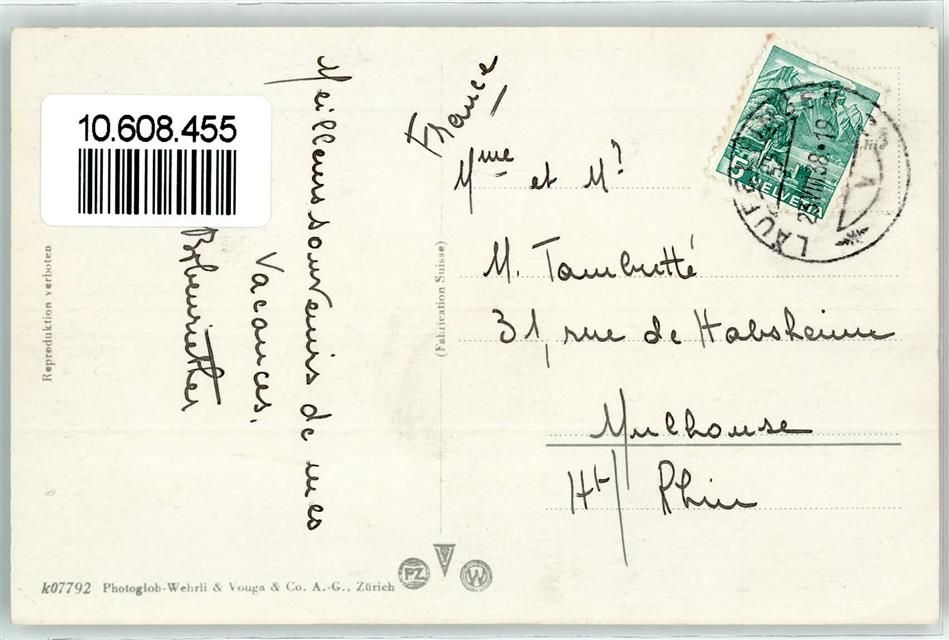 10.608.455
Meilleurs souvenirs de mes
Vacances.
France
Mme et Mr
M. Tambutté
31, rue de Habsheim
Mulhouse
Ht Rhin
5
HELVETIA
LAUF
25.VIII.38.19
Reproduktion verboten
(Fabrication Suisse)
k07792 Photoglob-Wehrli & Vouga & Co. A.-G., Zürich
PZ
W